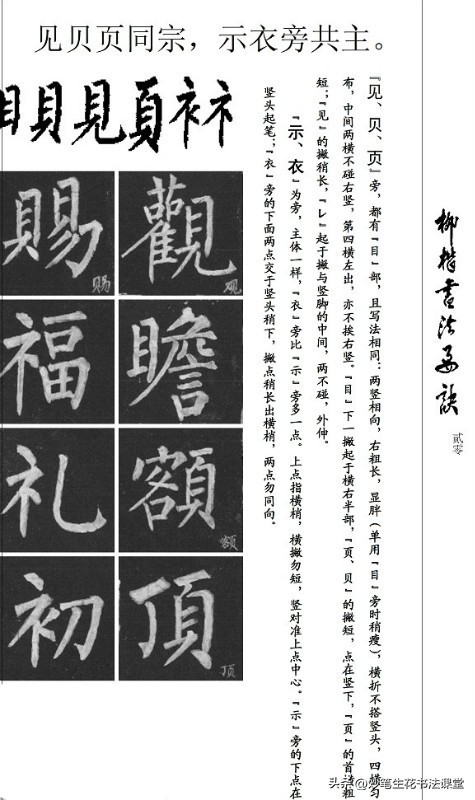 见贝页同宗，示衣旁共主。
目貝見頁衤礻
柳楷书法要诀
贰零
『见、贝、页』旁，都有『目』部，且写法相同：两竖相向，右粗长，显胖（单用『目』旁时稍瘦），横折不搭竖头，四横匀
布，中间两横不碰右竖，第四横左出，亦不挨右竖。『目』下一撇起于横右半部，『页、贝』的撇短，点在竖下，『页』的首横粗
短；『见』的撇稍长，『乚』起于撇与竖脚的中间，两不碰，外伸。
『示、衣』为旁，主体一样，『衣』旁比『示』旁多一点。上点指横梢，横撇勿短，竖对准上点中心。『示』旁的下点在
竖头起笔；『衣』旁的下面两点交于竖头稍下，撇点稍长出横梢，两点勿同向。
觀 观
瞻
額 额
頂 顶
賜 赐
福
礼
初
头条@妙笔生花书法课堂